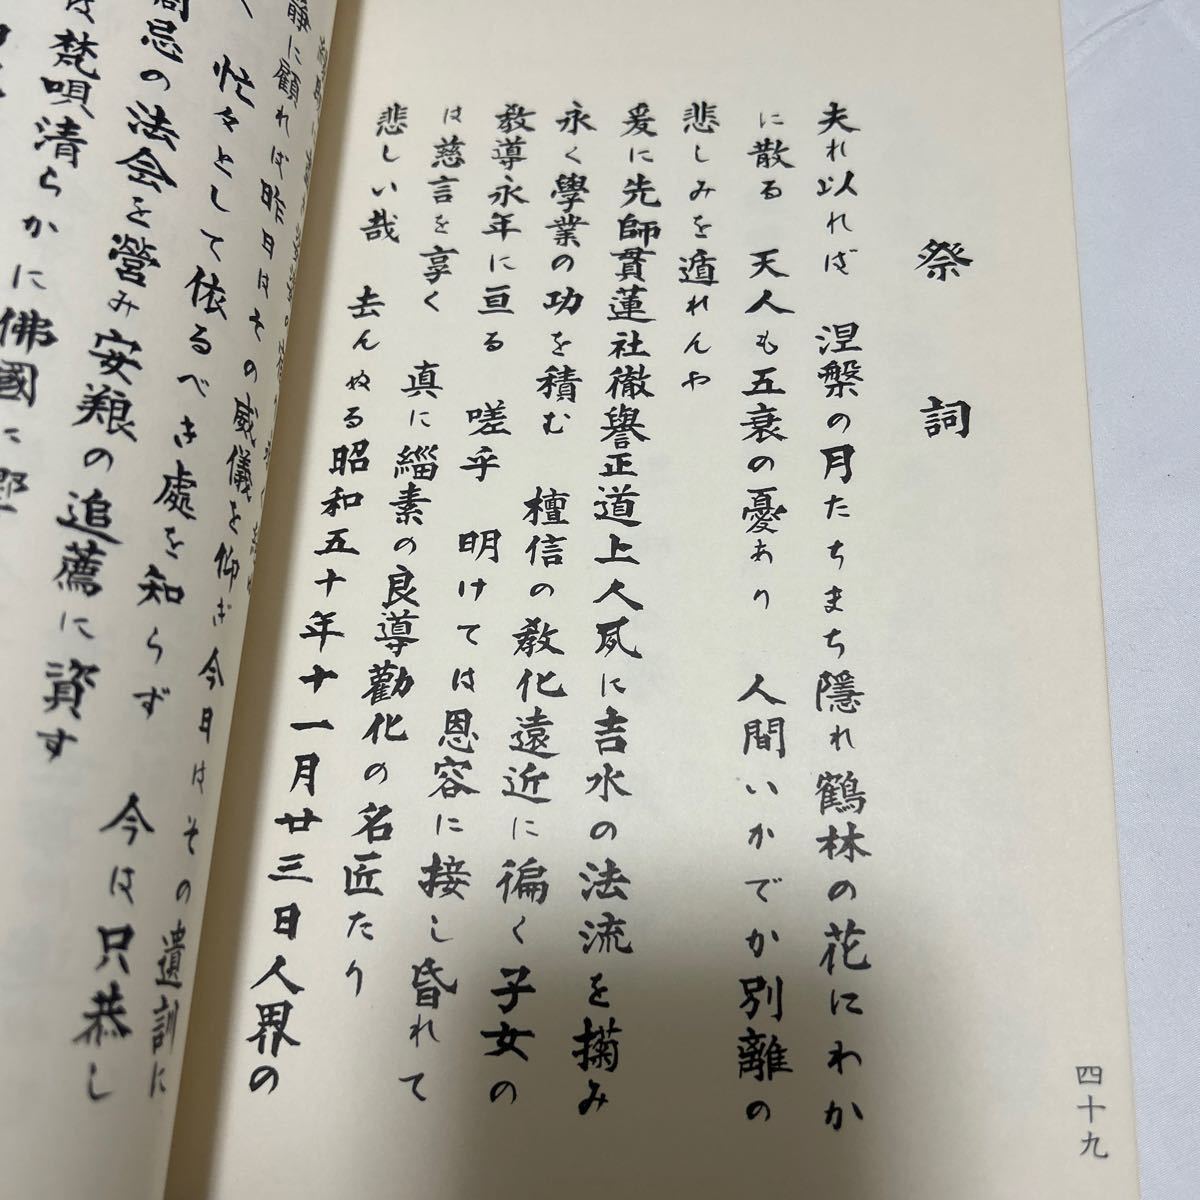 祭詞
夫れ以れば 涅槃の月たちまち隠れ鶴林の花にわか
に散る 天人も五衰の憂あり 人間いかでか別離の
悲しみを遁れんや
爰に先師貫蓮社徹譽正道上人夙に吉水の法流を掬み
永く學業の功を積む 檀信の教化遠近に徧く子女の
教導永年に亘る 嗟乎 明けては恩容に接し昏れて
は慈言を享く 真に緇素の良導勸化の名匠たり
悲しい哉 去んぬる昭和五十年十一月廿三日人界の
四十九
静に顧れば昨日はその威儀を仰ぎ今日はその遺訓に
忙々として依るべき處を知らず 今は只恭し
忌の法会を營み安養の追薦に資す
梵唄清らかに佛國に